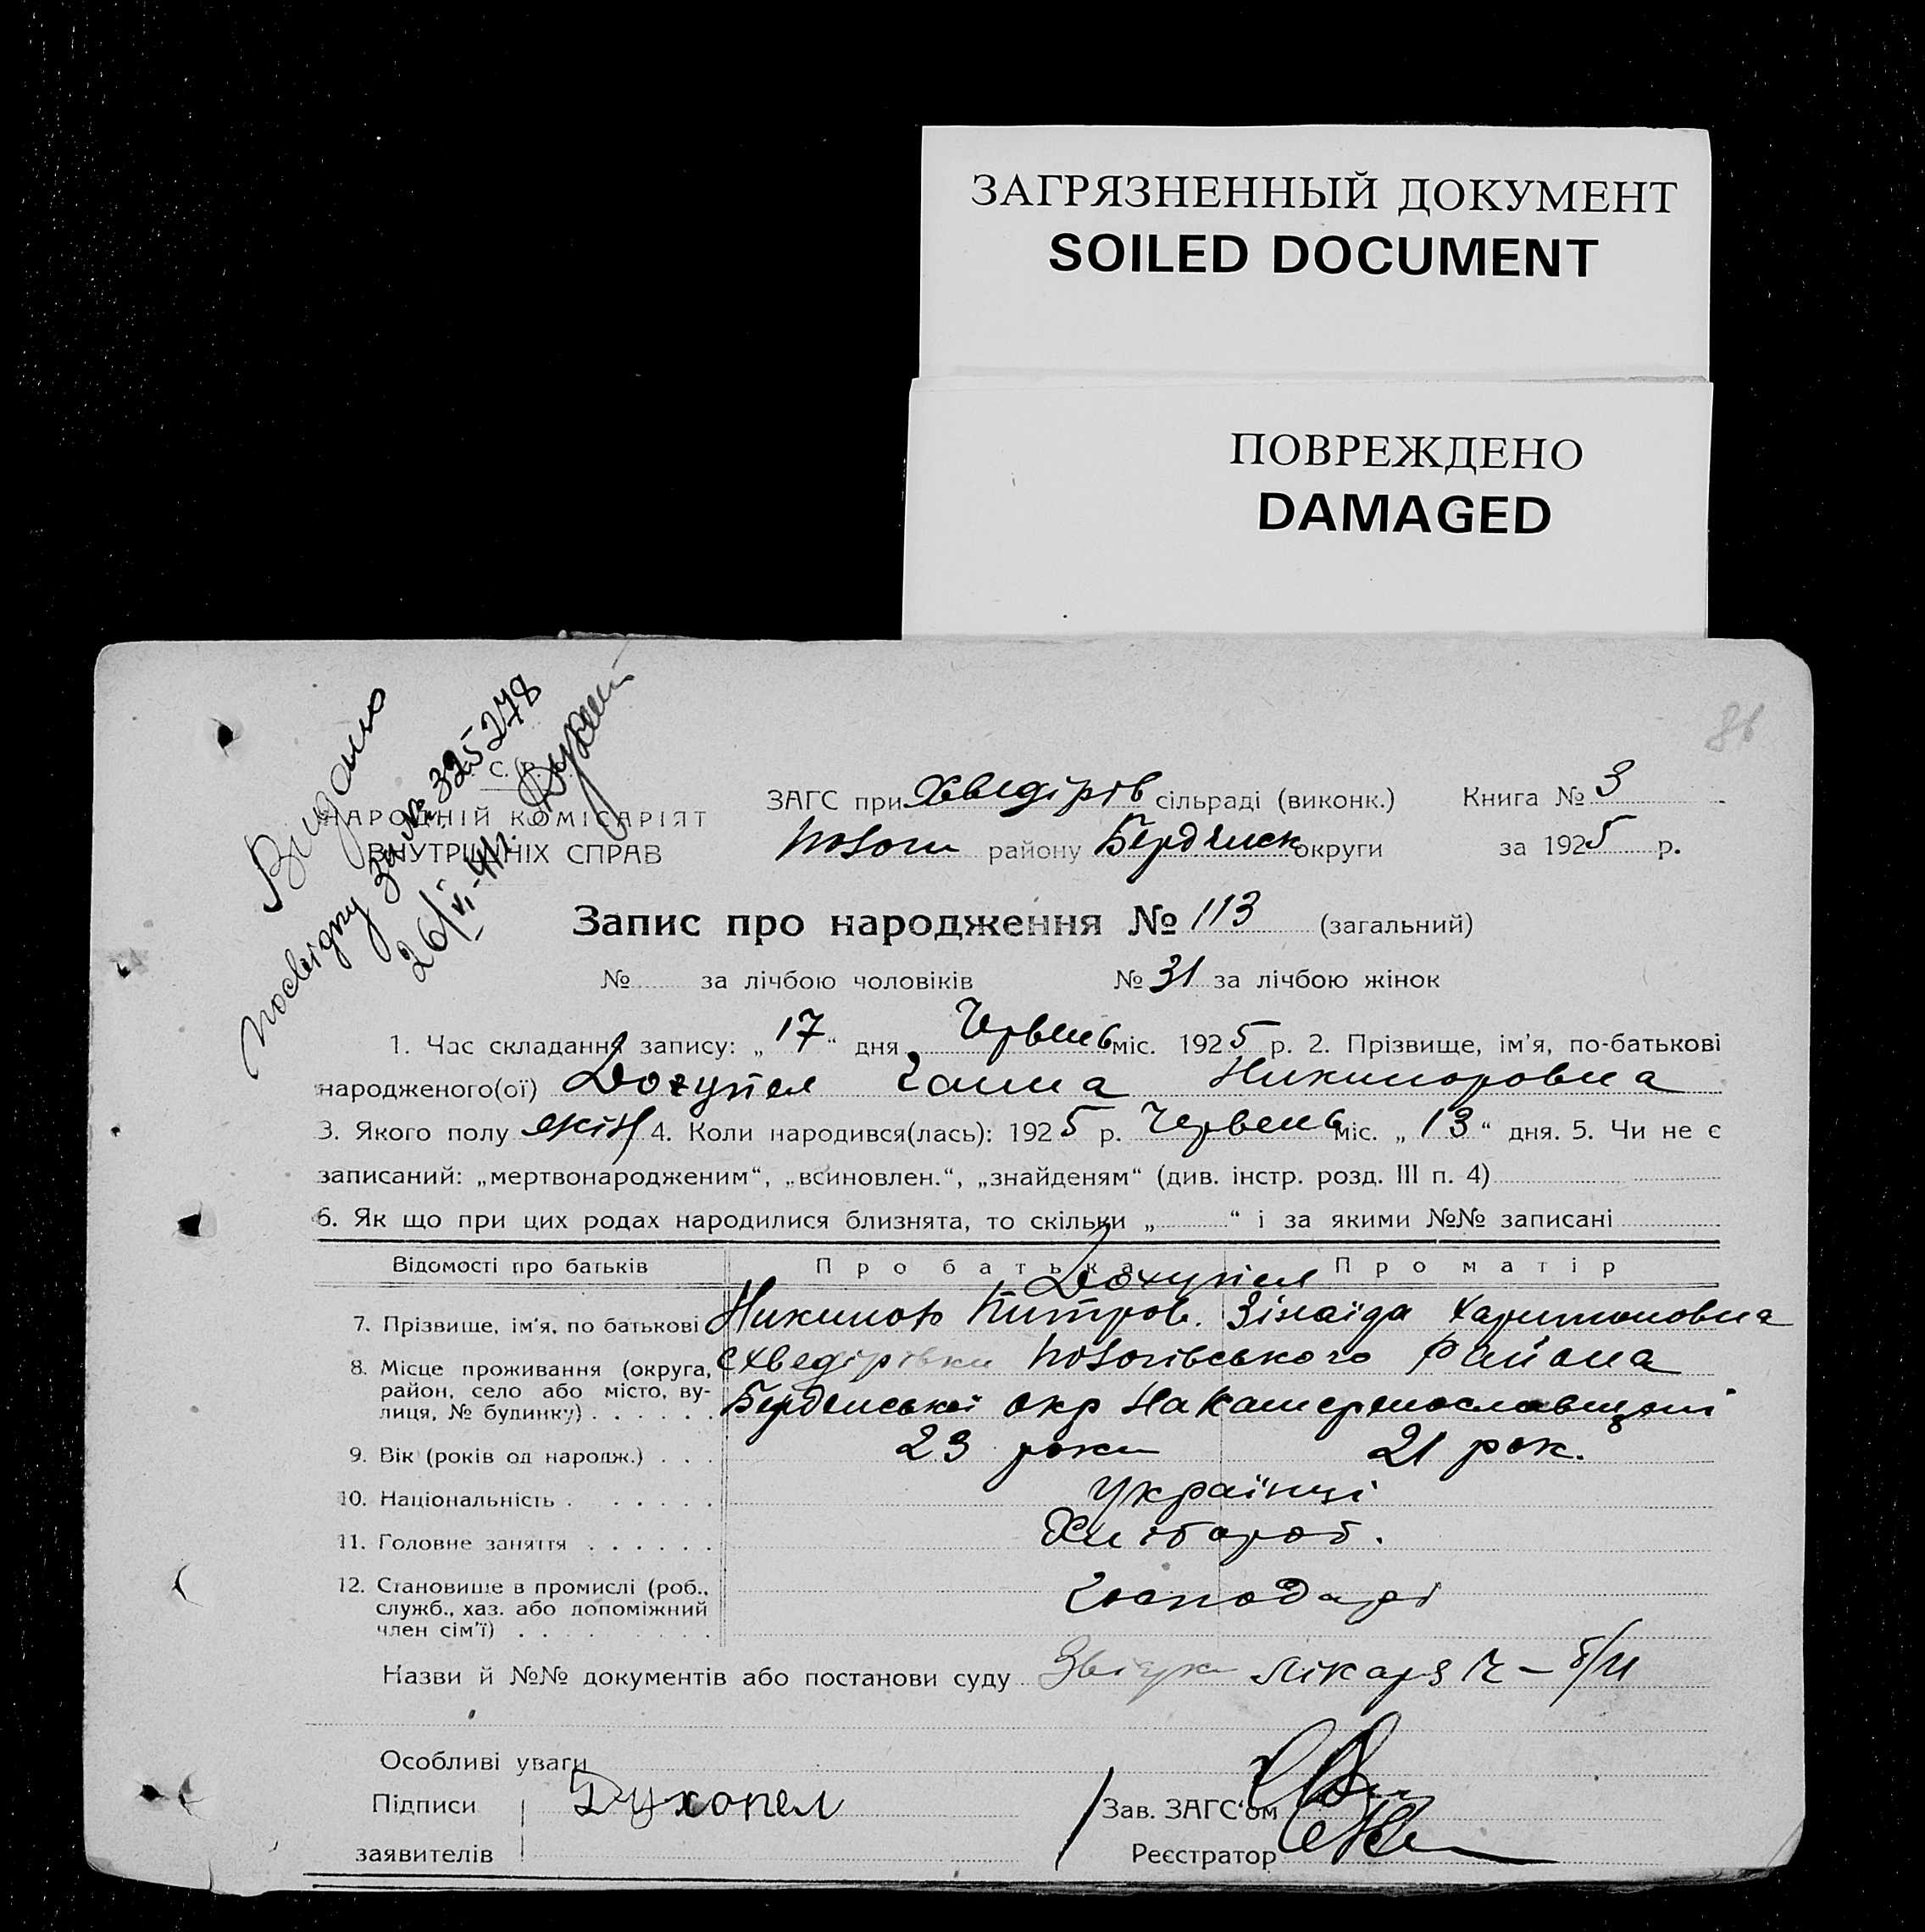 ЗАГРЯЗНЕННЫЙ ДОКУМЕНТ
SOILED DOCUMENT
ПОВРЕЖДЕНО
DAMAGED
86
Видано
посвідку за № 325278
26/VI-41
С. Р.
НАРОДНІЙ КОМІСАРІЯТ
ВНУТРІШНІХ СПРАВ
ЗАГС при Хведірів сільраді (виконк.) Книга № 3
району Бердянск округи за 1925 р.
Запис про народження № 113 (загальний)
№ за лічбою чоловіків № 31 за лічбою жінок
1. Час складання запису: „17“ дня Червень міс. 1925 р. 2. Прізвище, ім'я, по-батькові
народженого(ої) Дохупел Ганна Никиноровна
3. Якого полу жін 4. Коли народився(лась): 1925 р. Червень міс. „13“ дня. 5. Чи не є
записаний: „мертвонародженим“, „всиновлен.“, „знайденям“ (див. інстр. розд. III п. 4)
6. Як що при цих родах народилися близнята, то скільки „ “ і за якими №№ записані
Відомості про батьків Про батька Про матір
Дохупел
7. Прізвище, ім'я, по батькові Никинор Питров. Зінаїда Харитоновна
8. Місце проживання (округа, с Хведірівки району
район, село або місто, ву-
лиця, № будинку) Бердянської окр на Катеринославщині
9. Вік (років од народж.) 23 роки 21 рок.
10. Національність Українці
11. Головне заняття Хлібороб.
12. Становище в промислі (роб., Господарі
служб., хаз. або допоміжний
член сім'ї)
Назви й №№ документів або постанови суду лікаря Ч — б/н
Особливі уваги
Підписи Духопел Зав. ЗАГС'ом
заявителів Реєстратор